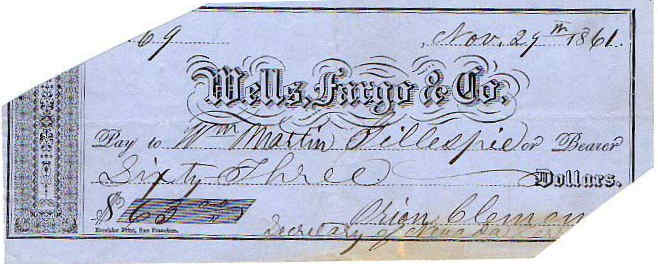 69 Nov. 29th 1861.
Wells, Fargo & Co.
Pay to Wm Martin Gillespie or Bearer
Sixty Three Dollars.
$63.00
Orion Clemen
Excelsior Print, San Francisco.
Secretary of Nevada